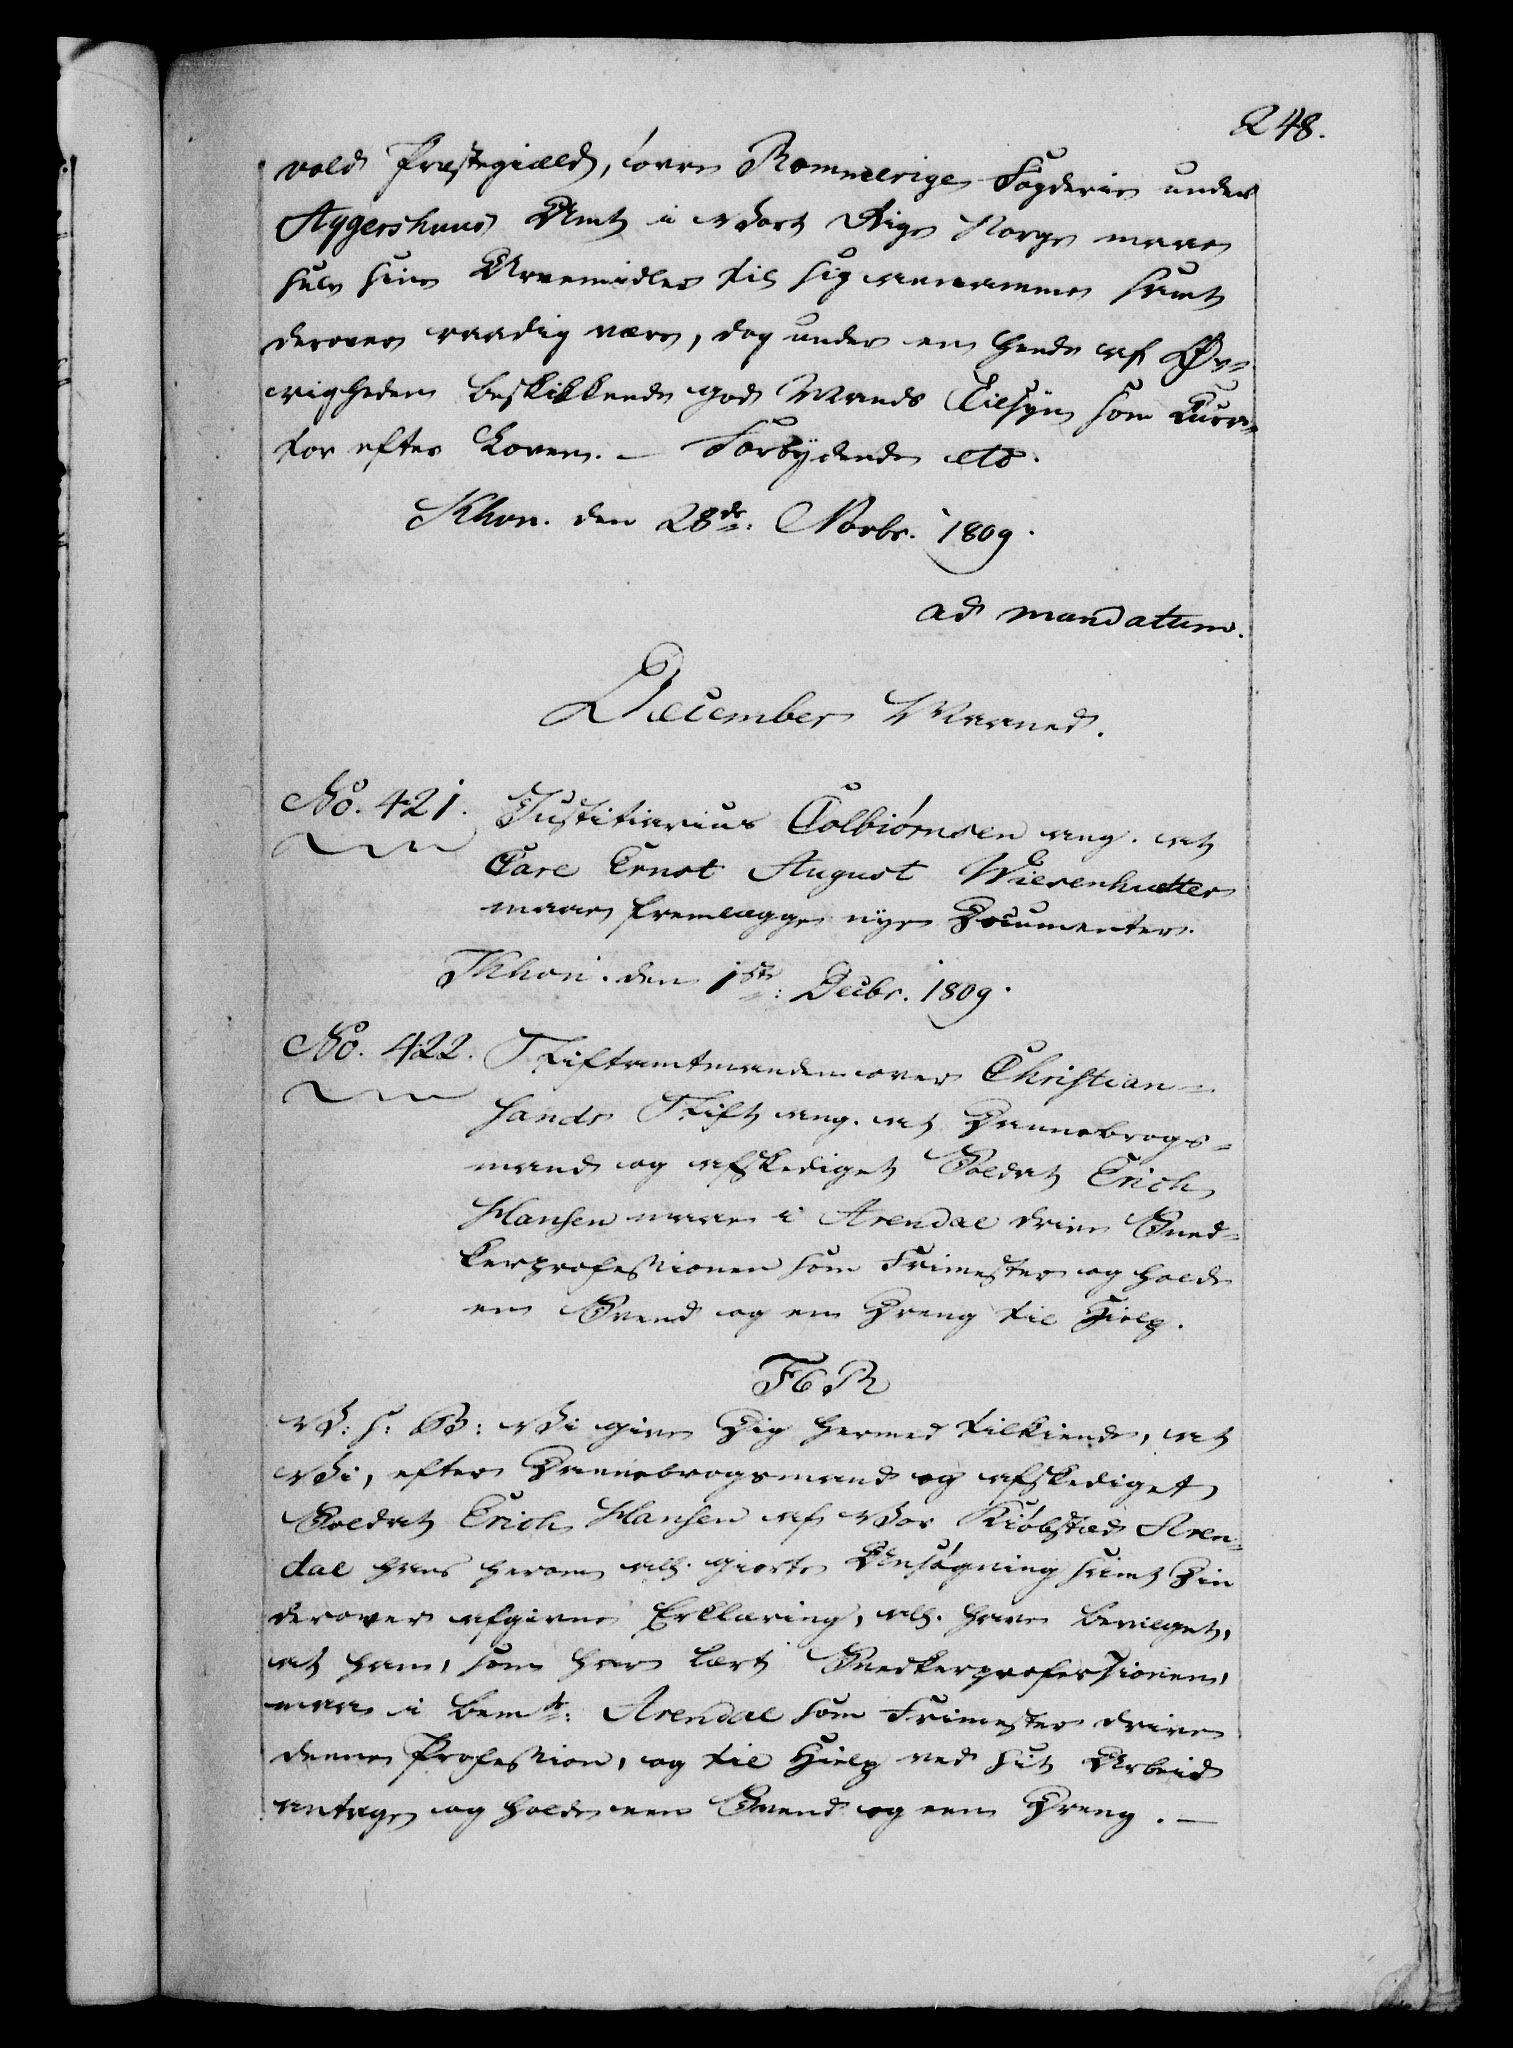 248.
vold Præstegield, øvre Rommerige Fogderie under
Aggershuus Amt i Vort Rige Norge maae
selv sine Arvemidler til sig annamme samt
derover raadig være, dog under en hende af Øv-
righeden beskikkende god Mands Tilsyn som Cura-
tor efter Loven. – Forbydende etc.
Khvn. den 28de: Novbr. 1809.
ad mandatum.
December Maaned.
No. 421. Justitiarius Colbiørnsen ang. at
Carl Ernst August Wiesenhutter
maae fremlægge nye Documenter.
Khvn. den 1ste: Decbr. 1809.
No. 422. Stiftamtmanden over Christian-
sands Stift ang. at Dannebrogs-
mand og afskediget Soldat Erich
Hansen maae i Arendal drive Sned-
kerprofessionen som Frimester og holde
en Svend og en Dreng til Hielp.
F6.R
V: S: G: Vi give Dig hermed tilkiende, at
Vi, efter Dannebrogsmand og afskediget
Soldat Erich Hansen af Vor Kiøbstad Aren-
dal hans herom all. giorte Ansøgning samt Din
derover afgivne Erklæring, all. have bevilget,
at ham, som har lært Snedkerprofessionen,
maa i bemte: Arendal som Frimester drive
denne Profession, og til Hielp ved sit Arbeid
antage og holde een Svend og een Dreng. –